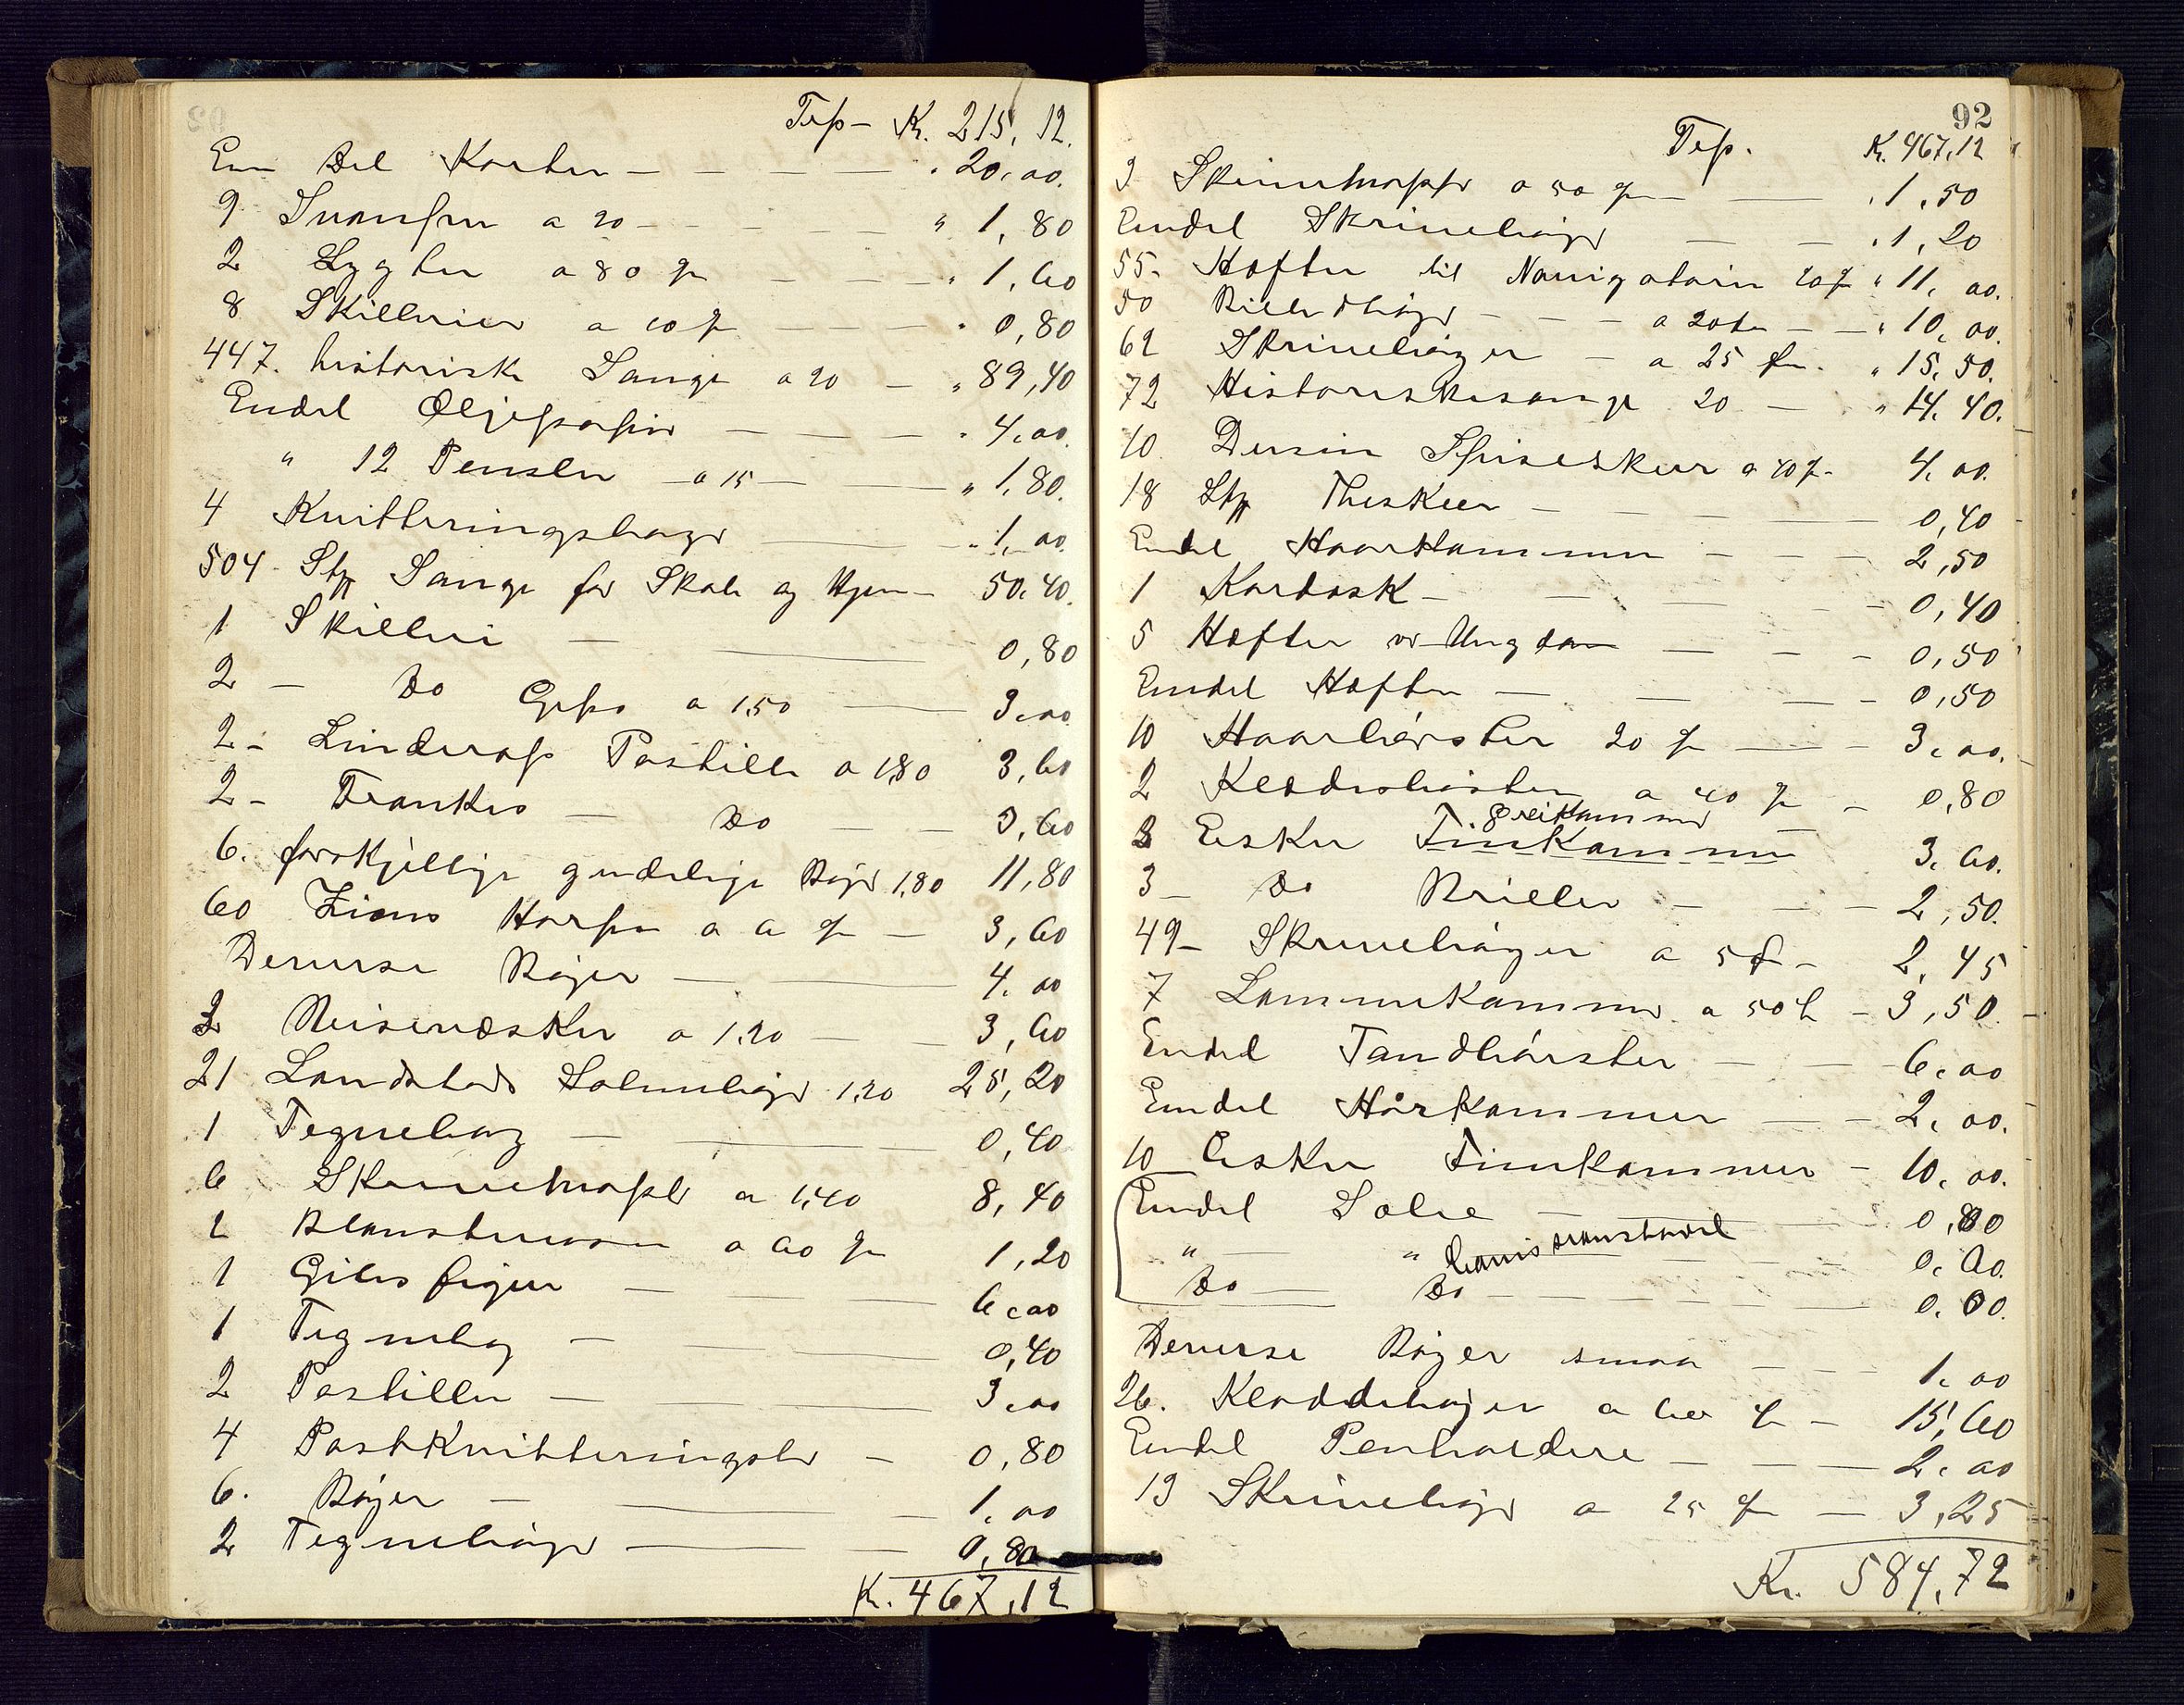 Trp - K. 215,12.
Een Del Korter - 20,00.
9 a 20 - " 1,80
2 Lygter a 80 ø - 1,60
8 Skillerier a 10 ø - 0,80
447. historiske Sange a 20 - " 89,40
Endel - 4,00.
" 12 Pensler a 15 - " 1,80.
4 Kvitteringsbøger - 1,00
504 - Stk Sange for Skole og Hjem - 50,40.
1 Skilleri - 0,80
2 - Do Gips a 1,50 - 3,00
2 - Linderofs Postille a 1,80 3,60
2 - Frankes - Do - 3,60
6. forskjellige gudelige Bøger 1,80 11,80
60 Zions Harpe a 6 ø - 3,60
Deverse Bøger - 4,00
3 Reisevæsker a 1,20 - 3,60
21 Landstads Salmebøger 1,20 25,20
1 Tegnebog - 0,40
6 a 1,40 8,40
2 a 60 ø 1,20
1 Gibs figur - 6,00
1 Tegnebog - 0,40
2 Postiller - 3,00
4 PostKvitteringsbr - 0,80
6. Bøger - 1,00
2 Tegnebøger - 0,80
K. 467,12
92
Trp. K. 467,12
3 a 50 ø - 1,50
Endel Skrivebøger - 1,20
55 - Hæfter til Navigatøren 20 ø " 11,00.
50 Billedbøger - a 20 - 10,00.
62 Skrivebøger - a 25 ø. " 15,50.
72 Historiskesange 20 - " 14,40.
10 Dusin Spiseskeer a 40 ø - 4,00.
18 Stk Theskeer - 0,40
Endel Haarkammer - 2,50
1 Kordask - 0,40
5 Hæfter Ungdom - 0,50
Endel Hæfter - 0,50
10 Haarbørster 20 ø - 3,00.
2 Klædesbørster a 40 ø - 0,80
Greikammer
3 Esker Finkammer 3,60.
3 - Do Briller - 2,50.
49 - Skrivebøger a 5 ø - 2,45
7 Lommekammer a 50 ø - 3,50.
Endel Tandbørster - 6,00
Endel Hårkammer - 2,00.
10 Esker Finkammer - 10,00.
Endel Salve - 0,80
" " 0,60.
Do - Do - 0,00.
Deverse Bøger smaa - 1,00
26. Kladdebøger a 60 ø - 15,60
Endel Penholdere - 2,00
13 Skrivebøger a 25 ø - 3,25
Kr. 584,72